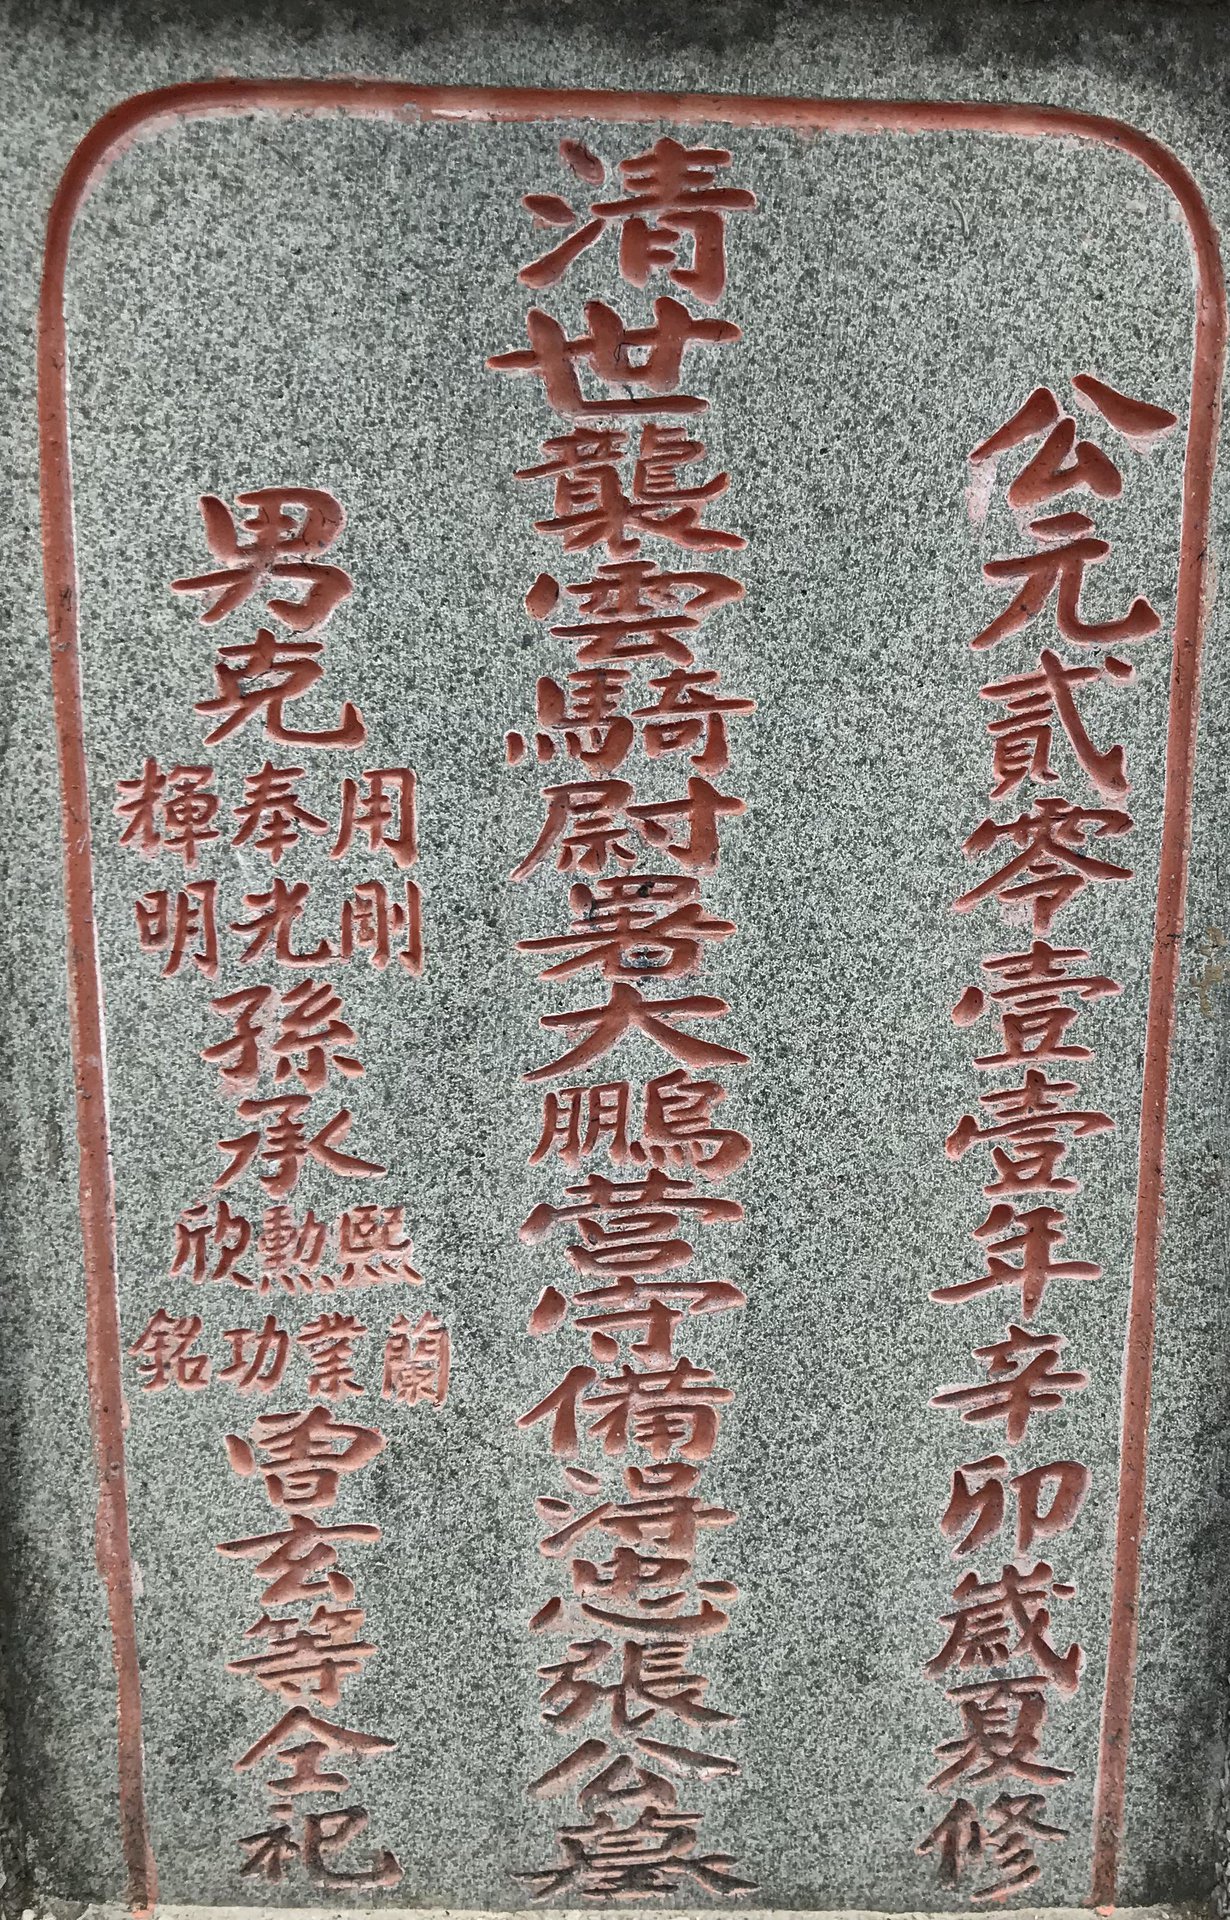 公元貳零壹壹年辛卯歲夏修
清世襲雲騎尉署大鵬營守備淂忠張公墓
男克用剛奉光輝明孫承熙勳欣蘭業功銘曾玄等仝祀